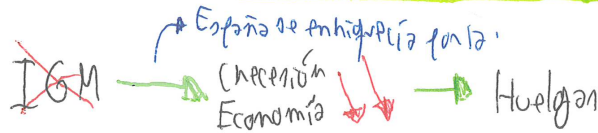 España se enriquecía por la.
IGM
Crecesión
Economía
Huelgas